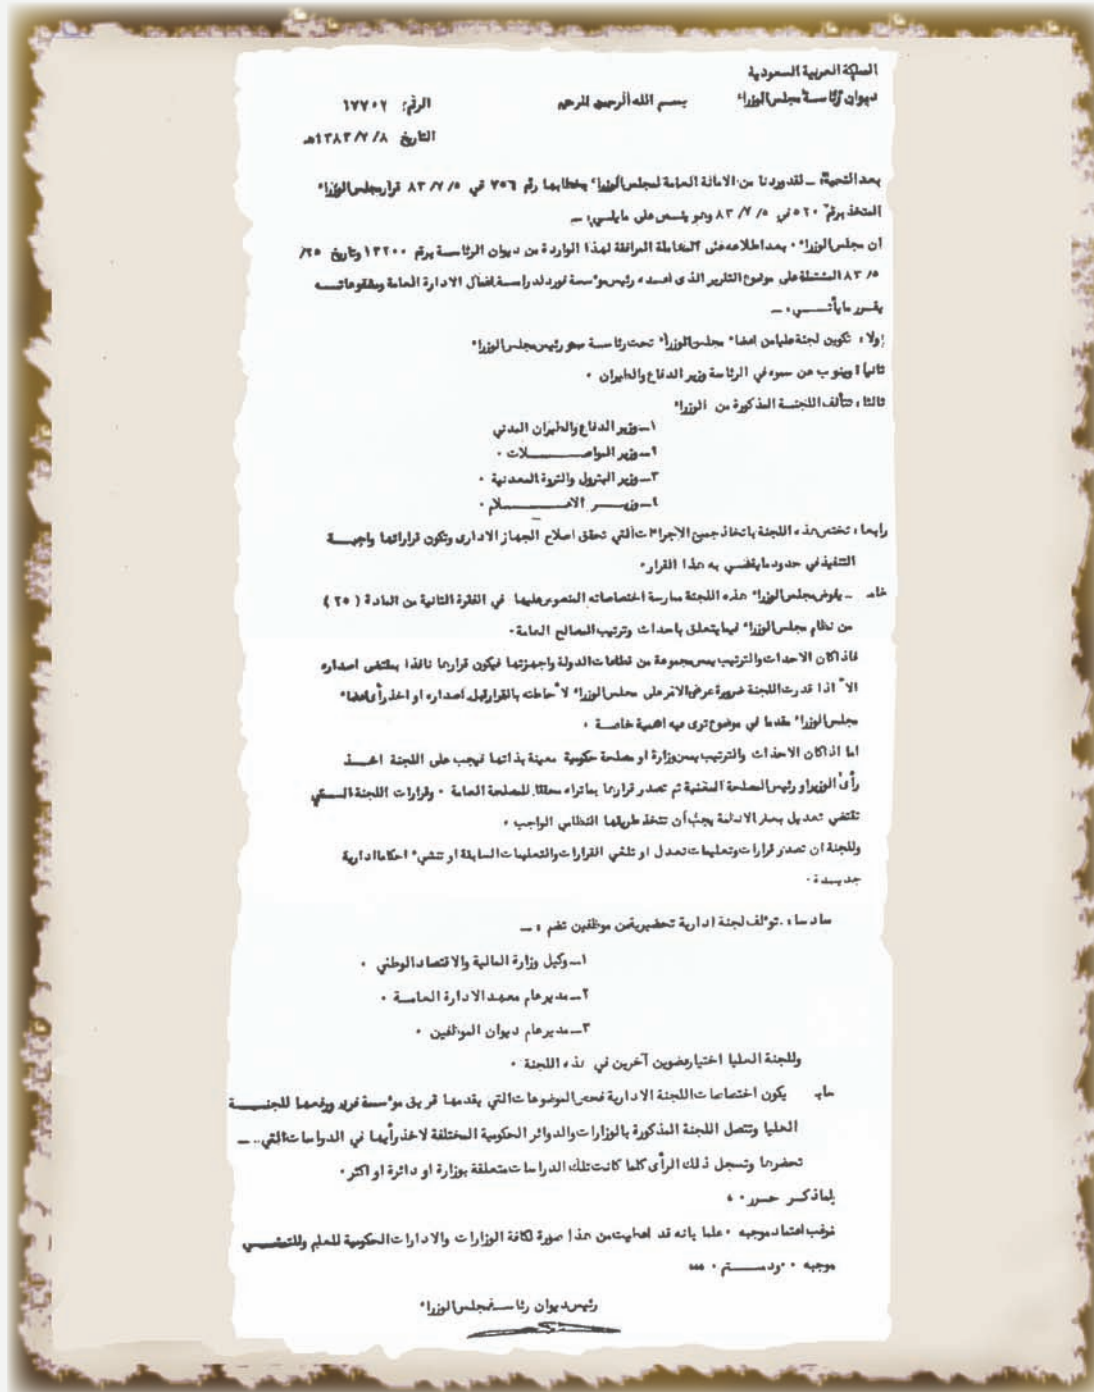 المملكة العربية السعودية
ديوان رئاسة مجلس الوزراء
بسم الله الرحمن الرحيم
الرقم: ١٧٧٠٢
التاريخ ١٣٨٣/٧/٨هـ
بعد التحية: ــ لقد وردنا من الامانة العامة لمجلس الوزراء بخطابها رقم ٧٥٦ في ٨٣/٧/٥ قرار مجلس الوزراء
المتخذ برقم ٥٢٠ في ٨٣/٧/٥ وهو ينص على مايلي: ــ
ان مجلس الوزراء ٠ بعد اطلاعه على المعاملة المرافقة لهذا الواردة من ديوان الرئاسة برقم ١٣٢٠٠ وتاريخ ٢٥/
٨٣/٥ المشتملة على موضوع التقرير الذى اعده رئيس مؤسسة فورد لدراسة اعمال الادارة العامة ومقترحاته
يقرر ما يأتي ٠ ــ
اولا ؛ تكوين لجنة عليا من اعضاء مجلس الوزراء تحت رئاسة سمو رئيس مجلس الوزراء
ثانيا ؛ وينوب عن سموه في الرئاسة وزير الدفاع والطيران ٠
ثالثا ؛ تتألف اللجنة المذكورة من الوزراء
١ــ وزير الدفاع والطيران المدني
٢ــ وزير المواصلات ٠
٣ــ وزير البترول والثروة المعدنية ٠
٤ــ وزير الاعلام ٠
رابعا ؛ تختص هذه اللجنة باتخاذ جميع الاجراءات التي تحقق اصلاح الجهاز الادارى وتكون قراراتها واجبة
التنفيذ في حدود ما يقضي به هذا القرار ٠
ــ يفوض مجلس الوزراء هذه اللجنة ممارسة اختصاصاته المنصوص عليها في الفقرة الثانية من المادة ( ٢٥ )
من نظام مجلس الوزراء فيما يتعلق باحداث وترتيب المصالح العامة ٠
فاذا كان الاحداث والترتيب يمس مجموعة من قطاعات الدولة واجهزتها فيكون قرارها نافذا بمقتضى اصداره
الا اذا قدرت اللجنة ضرورة عرض الامر على مجلس الوزراء لاحاطته بالقرار قبل اصداره او اخذ رأى اعضاء
مجلس الوزراء مقدما في موضوع ترى فيه اهمية خاصة ٠
اما اذا كان الاحداث والترتيب يمس وزارة او مصلحة حكومية معينة بذاتها فيجب على اللجنة اخذ
رأى الوزير او رئيس المصلحة المعنية ثم تصدر قرارها بما تراه محققا للمصلحة العامة ٠ وقرارات اللجنة التي
تقتضي تعديل بعض الانظمة يجب أن تتخذ طريقها النظامي الواجب ٠
وللجنة ان تصدر قرارات وتعليمات تعدل او تلغي القرارات والتعليمات السابقة او تنشيء احكاما ادارية
جديدة ٠
سادسا ؛ ـ تؤلف لجنة ادارية تحضيرية من موظفين تضم ؛ ــ
١ــ وكيل وزارة المالية والاقتصاد الوطني ٠
٢ــ مدير عام معهد الادارة العامة ٠
٣ــ مدير عام ديوان الموظفين ٠
وللجنة العليا اختيار عضوين آخرين في هذه اللجنة ٠
يكون اختصاصات اللجنة الادارية فحص الموضوعات التي يقدمها فريق مؤسسة فورد ورفعها للجنة
العليا وتتصل اللجنة المذكورة بالوزارات والدوائر الحكومية المختلفة لاخذ رأيها في الدراسات التي .. ــ
تحضرها وتسجل ذلك الرأى كلما كانت تلك الدراسات متعلقة بوزارة او دائرة او اكثر ٠
ولما ذكر حرر ٠ ،
نرغب اعتماد موجبه ٠ علما بانه قد اعطيت من هذا صورة لكافة الوزارات والادارات الحكومية للعلم وللتمشي
بموجبه ٠ ٠ ودمتم ٠ ،،،
رئيس ديوان رئاسة مجلس الوزراء